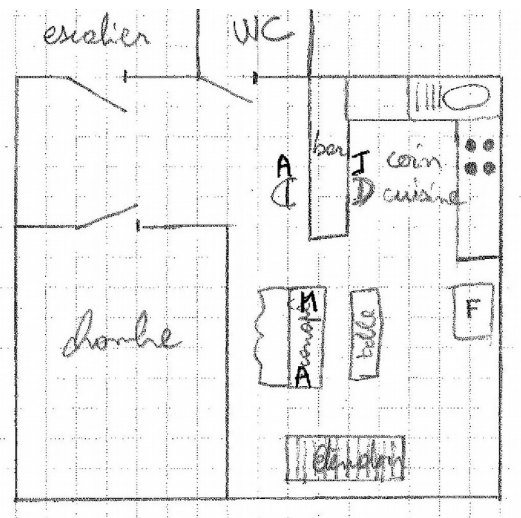 escalier
WC
bar
A
J
coin
cuisine
M
canapé
A
F
chambre